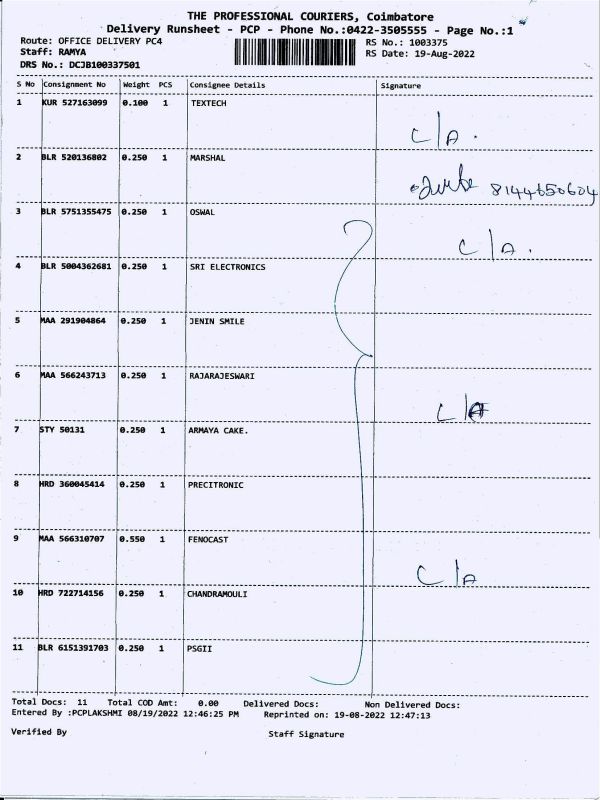 THE PROFESSIONAL COURIERS, Coimbatore
Delivery Runsheet - PCP - Phone No.:0422-3505555 - Page No.:1
Route: OFFICE DELIVERY PC4 RS No.: 1003375
Staff: RAMYA RS Date: 19-Aug-2022
DRS No.: DCJB100337501
S No Consignment No Weight PCS Consignee Details Signature
1 KUR 527163099 0.100 1 TEXTECH
C/A.
2 BLR 520136802 0.250 1 MARSHAL
8144650604
3 BLR 5751355475 0.250 1 OSWAL
C/A.
4 BLR 5004362681 0.250 1 SRI ELECTRONICS
5 MAA 291904864 0.250 1 JENIN SMILE
6 MAA 566243713 0.250 1 RAJARAJESWARI
C/A
7 STY 50131 0.250 1 ARMAYA CAKE.
8 HRD 360045414 0.250 1 PRECITRONIC
9 MAA 566310707 0.550 1 FENOCAST
C/A
10 HRD 722714156 0.250 1 CHANDRAMOULI
11 BLR 6151391703 0.250 1 PSGII
Total Docs: 11 Total COD Amt: 0.00 Delivered Docs: Non Delivered Docs:
Entered By :PCPLAKSHMI 08/19/2022 12:46:25 PM Reprinted on: 19-08-2022 12:47:13
Verified By Staff Signature